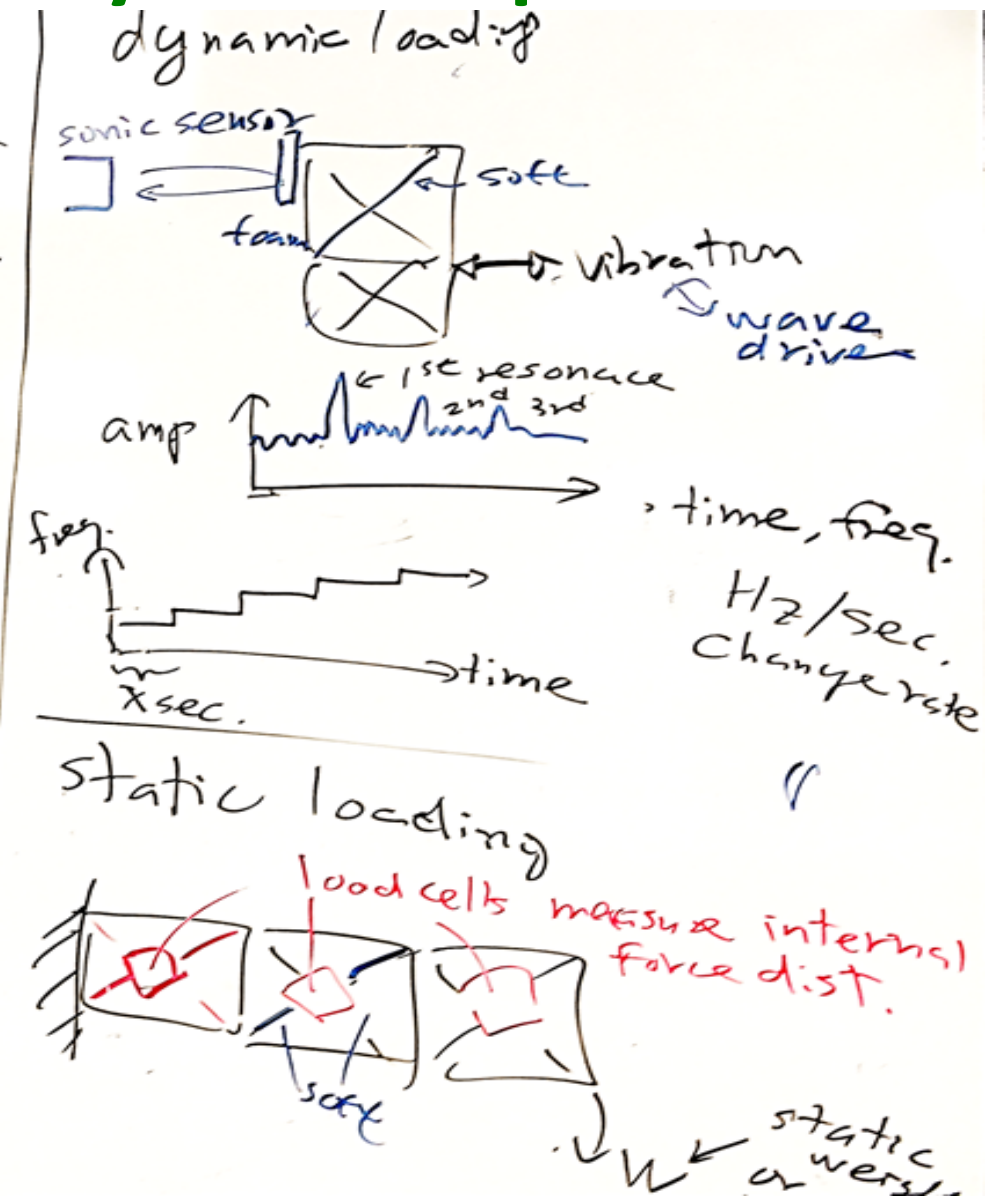 dynamic loading
sonic sensor
soft
foam
vibration
wave
drive
1st resonace
2nd 3rd
amp
time, freq.
freq.
Hz/sec.
Change rate
time
X sec.
static loading
load cells measure internal
force dist.
soft
W
static
or